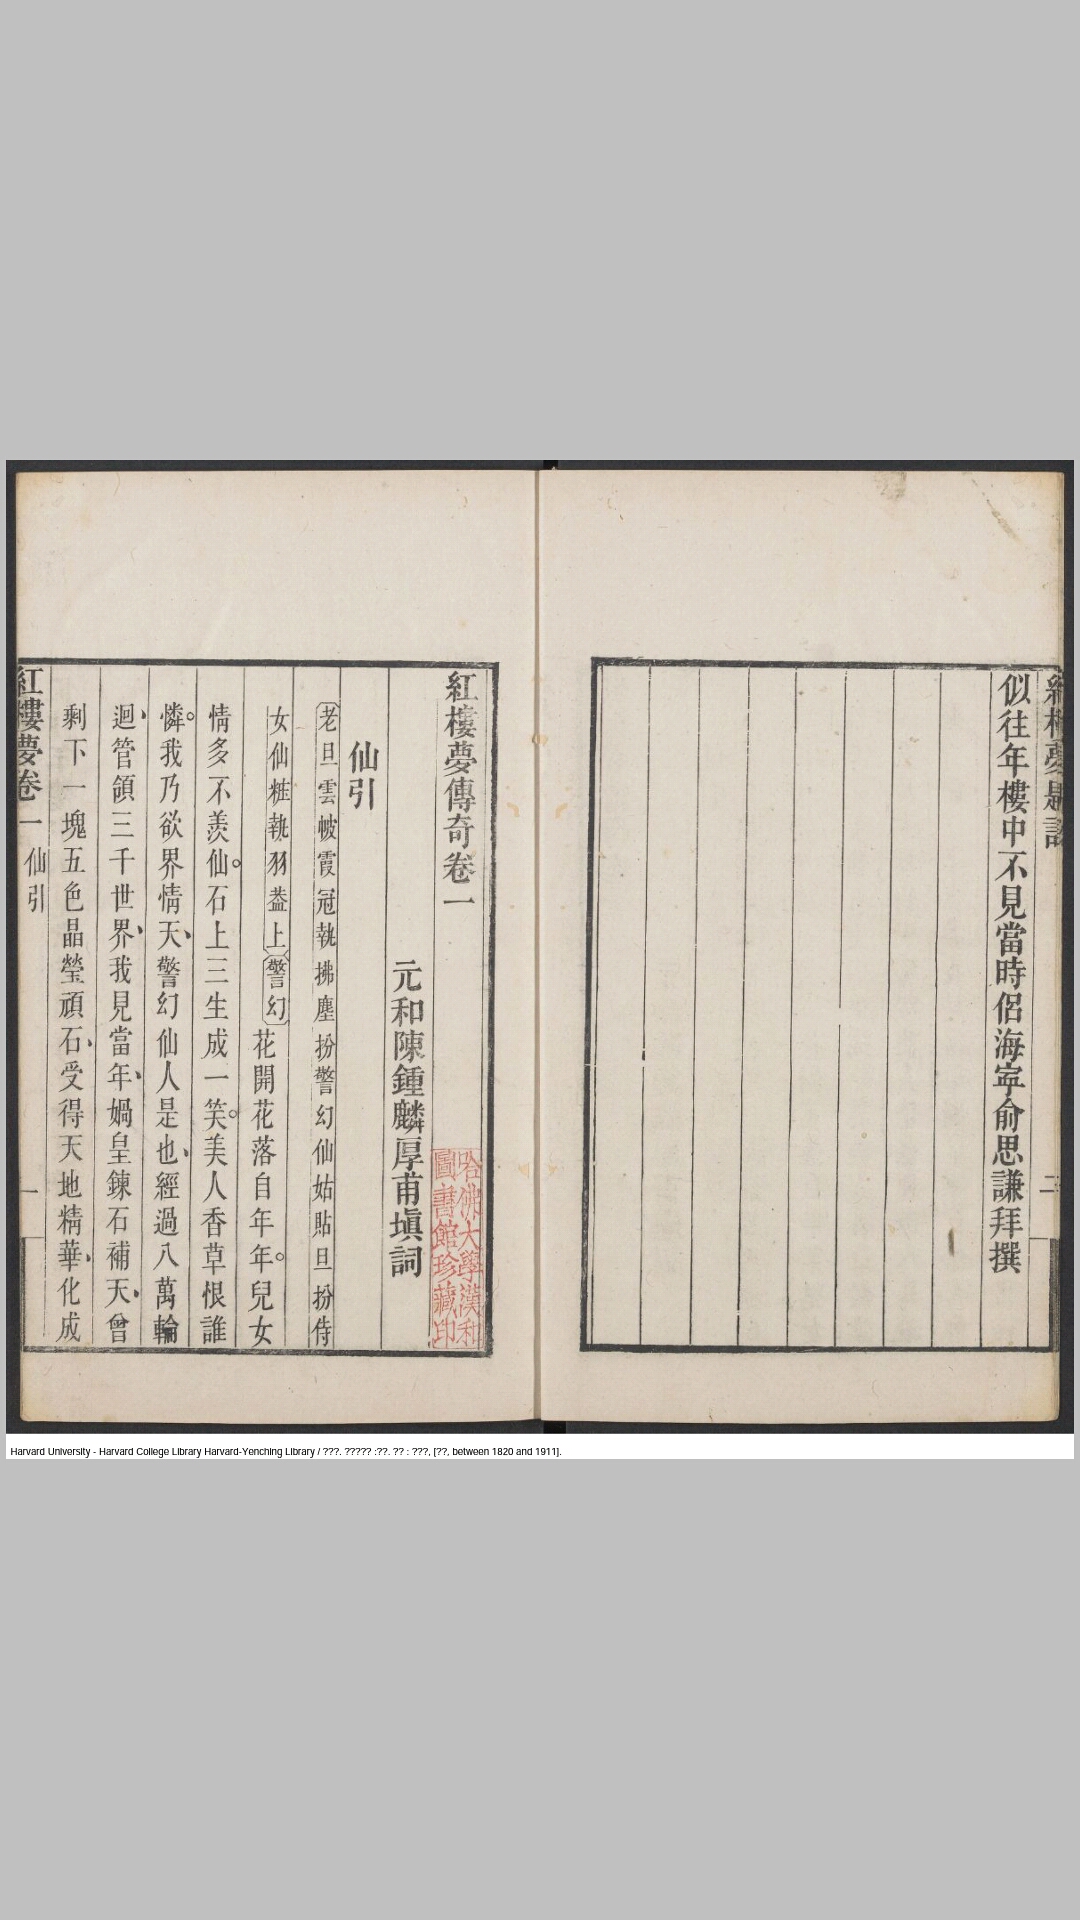 似往年樓中不見當時侶海寧俞思謙拜撰
二
紅樓夢傳奇卷一
哈佛大學漢和
圖書館珍藏印
元和陳鍾麟厚甫塡詞
仙引
老旦雲帔霞冠執拂塵扮警幻仙姑貼旦扮侍
女仙粧執羽葢上警幻花開花落自年年。兒女
情多不羨仙。石上三生成一笑。美人香草恨誰
憐。我乃欲界情天、警幻仙人是也、經過八萬輪
迴、管領三千世界、我見當年、媧皇鍊石補天、曾
剩下一塊五色晶瑩頑石、受得天地精華、化成
紅樓夢卷一 仙引 一
Harvard University - Harvard College Library Harvard-Yenching Library / ???. ????? :??. ?? : ???, [??, between 1820 and 1911].